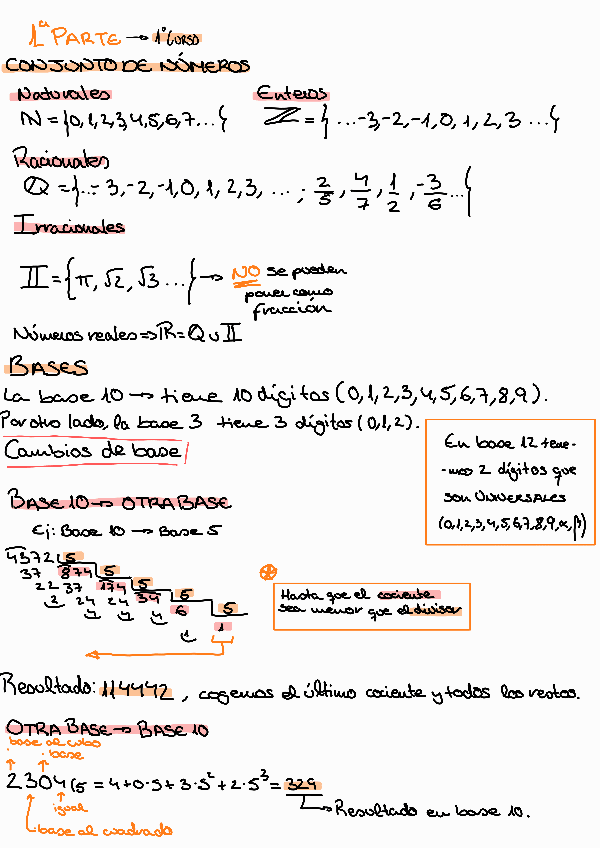 1ª PARTE → 1º CURSO
CONJUNTO DE NÚMEROS
Naturales
ℕ = {0, 1, 2, 3, 4, 5, 6, 7...}
Enteros
ℤ = {...-3, -2, -1, 0, 1, 2, 3 ...}
Racionales
ℚ = {... -3, -2, -1, 0, 1, 2, 3, ... , 2/5, 4/7, 1/2, -3/6 ...}
Irracionales
𝕀 = {π, √2, √3 ...} → NO se pueden
poner como
fracción
Números reales ⇒ ℝ = ℚ ∪ 𝕀
BASES
La base 10 → tiene 10 dígitos (0, 1, 2, 3, 4, 5, 6, 7, 8, 9).
Por otro lado, la base 3 tiene 3 dígitos (0, 1, 2).
Cambios de base
En base 12 tene-
-mos 2 dígitos que
son UNIVERSALES
(0, 1, 2, 3, 4, 5, 6, 7, 8, 9, α, β)
BASE 10 → OTRA BASE
Ej: Base 10 → Base 5
4372 5
37 874 5
22 37 174 5
2 24 24 34 5
4 4 4 6 5
1 1
Hasta que el cociente
sea menor que el divisor
Resultado: 114442, cogemos el último cociente y todos los restos.
OTRA BASE → BASE 10
base al cubo
base
2304(5 = 4 + 0·5 + 3·5² + 2·5³ = 329
igual
Resultado en base 10.
base al cuadrado